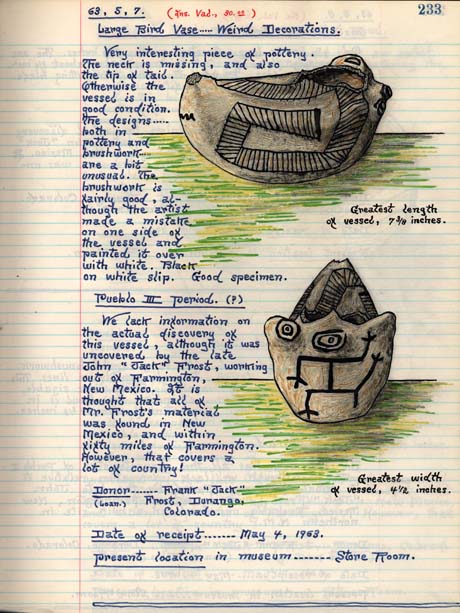 63, 5, 7. (Ins. Vad., 30.00) 233
Large Bird Vase.... Weird Decorations.
Very interesting piece of pottery.
The neck is missing, and also
the tip of tail.
Otherwise the
vessel is in
good condition.
The designs.....
both in
pottery and
brushwork....
are a bit
unusual. The
brushwork is
fairly good, al-
though the artist
made a mistake
on one side of
the vessel and
painted it over
with white. Black
on white slip. Good specimen.
Greatest length
of vessel, 7 3/8 inches.
Pueblo III Period. (?)
We lack information on
the actual discovery of
this vessel, although it was
uncovered by the late
John "Jack" Frost, working
out of Farmington,
New Mexico. It is
thought that all of
Mr. Frost's material
was found in New
Mexico, and within
sixty miles of Farmington.
However, that covers a
lot of country!
Greatest width
of vessel, 4 1/2 inches.
Donor------- Frank "Jack"
(Loan.) Frost, Durango,
Colorado.
Date of receipt....... May 4, 1963.
Present location in museum------- Store Room.